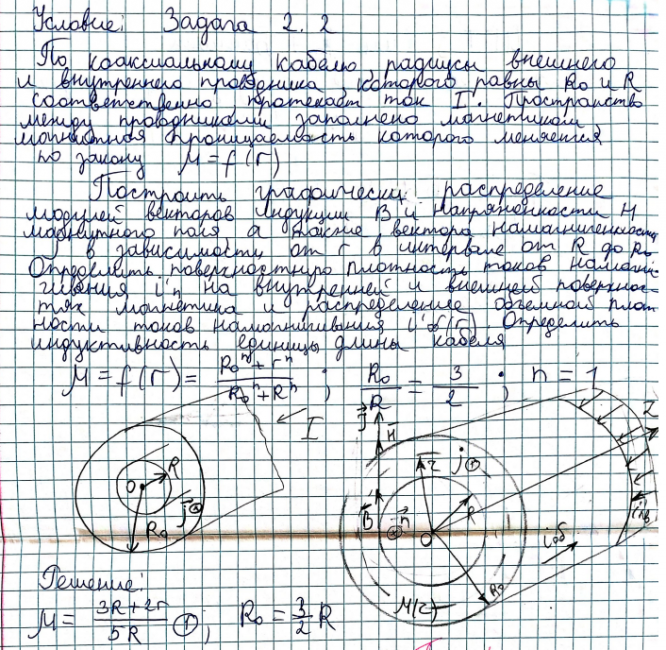 Условие: Задача 2.2
По коаксиальному кабелю радиусы внешнего
и внутреннего проводника, которого равны R₀ и R
соответственно, протекает ток I. Пространство
между проводниками заполнено магнетиком
магнитная проницаемость которого меняется
по закону M = f(r)
Построить графически распределение
модулей векторов индукции B и напряженности H
магнитного поля а также вектора намагниченности
в зависимости от r в интервале от R до R₀
Определить поверхностную плотность токов намагни-
чивания i'п на внутренней и внешней поверхнос-
тях магнетика и распределение объемной плот-
ности токов намагничивания i'об(r). Определить
индуктивность единицы длины кабеля
M = f(r) = (R₀ⁿ + rⁿ)/(R₀ⁿ + Rⁿ) ; R₀/R = 3/2 ; n = 1
I
O R
R₀ j⊕
j H τ j⊕ Z
B n R
O
R₀
M(r)
i об
Решение:
M = (3R + 2r)/5R ①; R₀ = 3/2 R